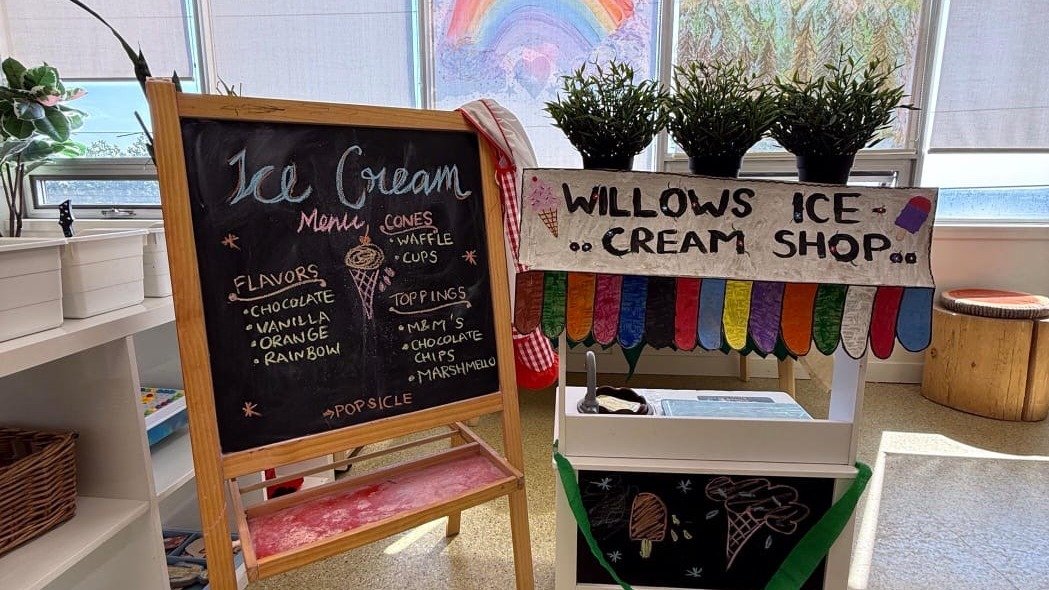 Ice Cream
Menu
FLAVORS
• CHOCOLATE
• VANILLA
• ORANGE
• RAINBOW
CONES
• WAFFLE
• CUPS
TOPPINGS
• M&M'S
• CHOCOLATE
CHIPS
• MARSHMELLO
→POPSICLE
WILLOWS ICE
CREAM SHOP